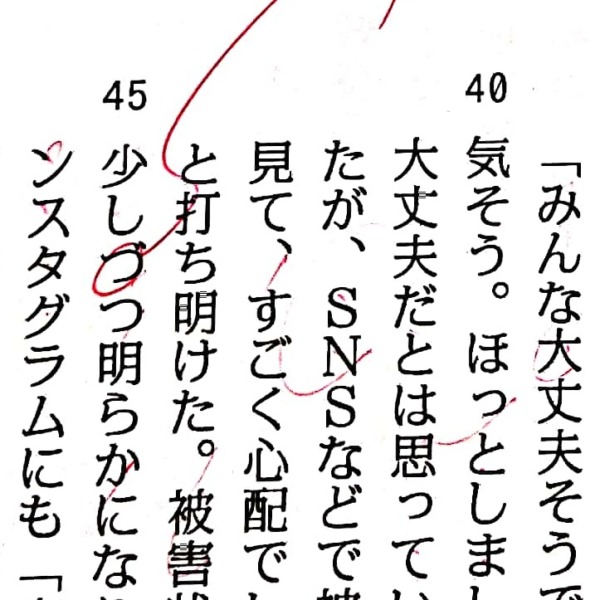 「みんな大丈夫そうで
40
気そう。ほっとしまし
大丈夫だとは思ってい
たが、SNSなどで被
見て、すごく心配でし
と打ち明けた。被害状
45
少しづつ明らかにな
ンスタグラムにも「